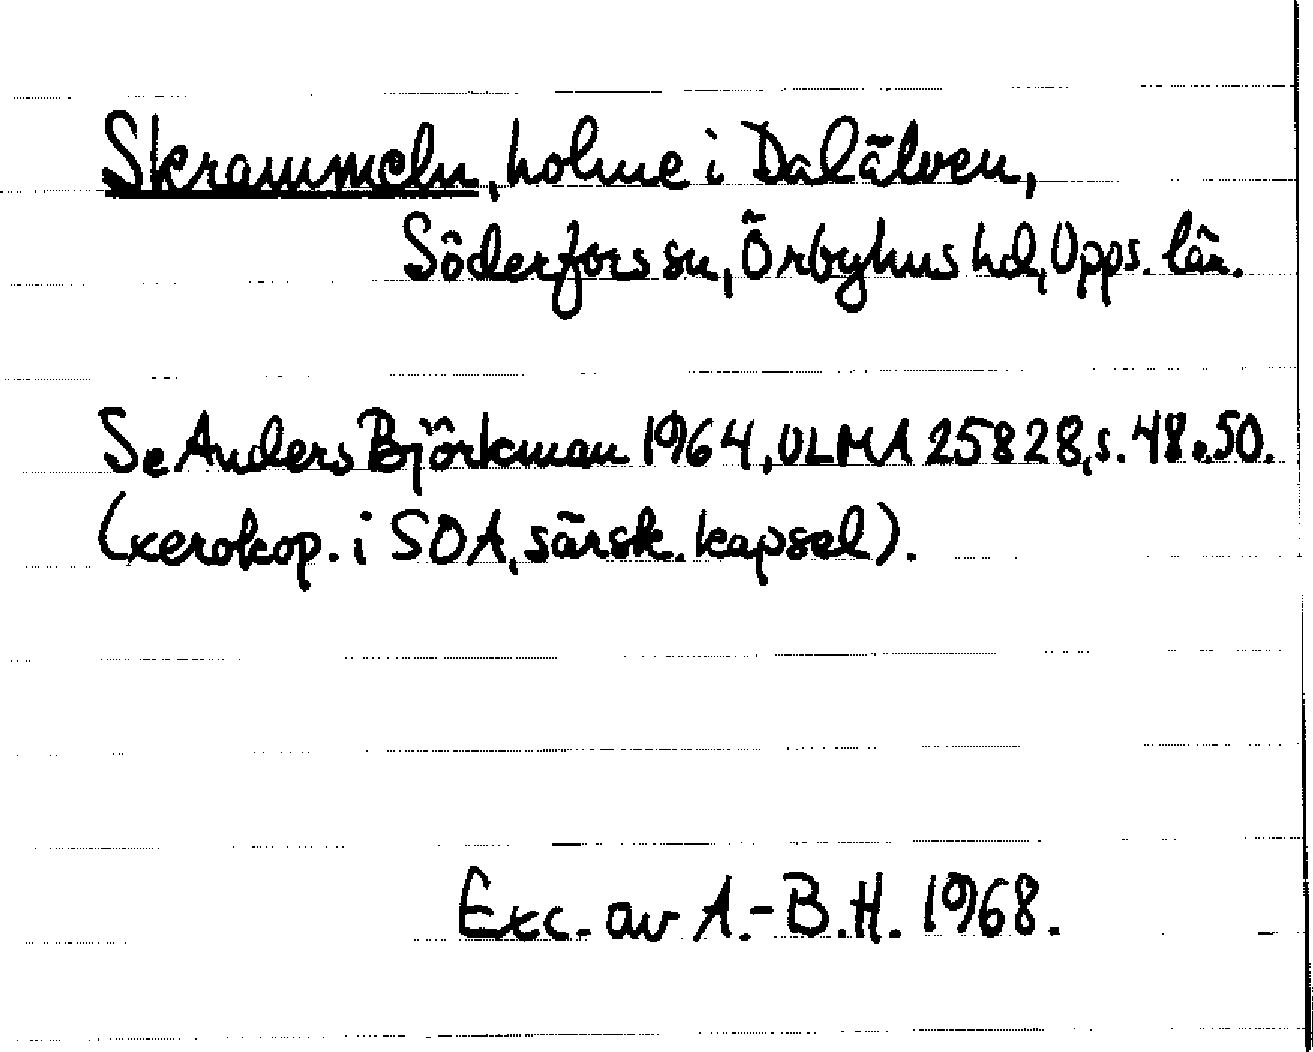 Skrammeln, holme i Dalälven,
Söderfors sn, Örbyhus hd, Upps. län.
Se Anders Björkman 1964, ULMA 25828, s. 48.50.
(xerokop. i SOA, särsk. kapsel).
Exc. av A.-B.H. 1968.